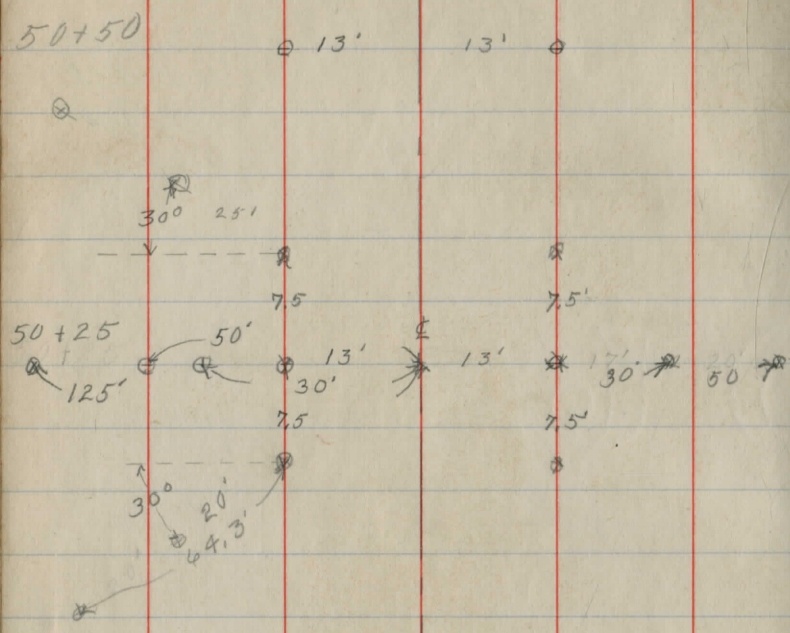 50+50 13' 13'
30° 25'
7.5 7.5'
50+25 50' ℄
13' 13' 30' 50
125' 30'
7.5 7.5'
30° 20'
64.3'